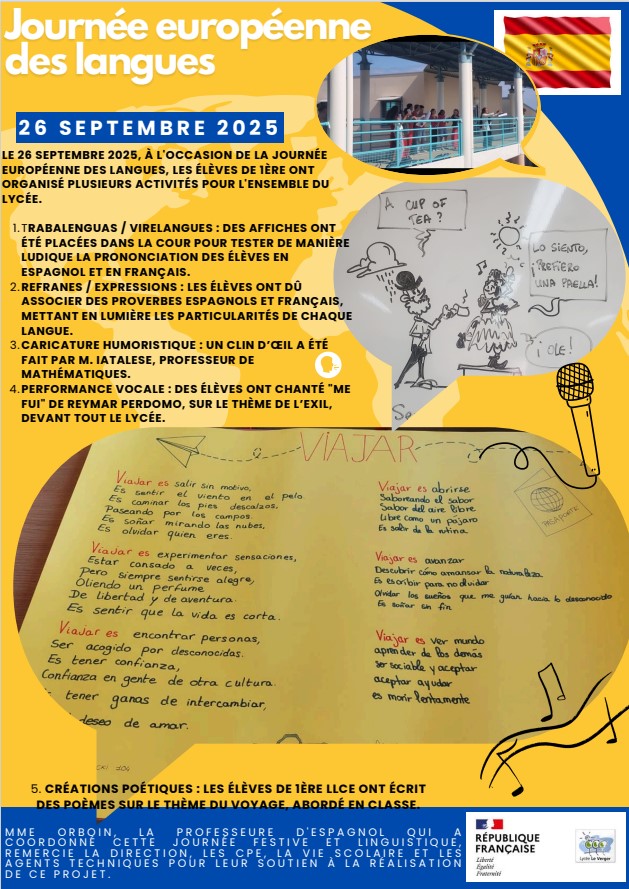 Journée européenne
des langues
26 SEPTEMBRE 2025
LE 26 SEPTEMBRE 2025, À L'OCCASION DE LA JOURNÉE
EUROPÉENNE DES LANGUES, LES ÉLÈVES DE 1ÈRE ONT
ORGANISÉ PLUSIEURS ACTIVITÉS POUR L'ENSEMBLE DU
LYCÉE.
1. TRABALENGUAS / VIRELANGUES : DES AFFICHES ONT
ÉTÉ PLACÉES DANS LA COUR POUR TESTER DE MANIÈRE
LUDIQUE LA PRONONCIATION DES ÉLÈVES EN
ESPAGNOL ET EN FRANÇAIS.
2. REFRANES / EXPRESSIONS : LES ÉLÈVES ONT DÛ
ASSOCIER DES PROVERBES ESPAGNOLS ET FRANÇAIS,
METTANT EN LUMIÈRE LES PARTICULARITÉS DE CHAQUE
LANGUE.
3. CARICATURE HUMORISTIQUE : UN CLIN D'ŒIL A ÉTÉ
FAIT PAR M. IATALESE, PROFESSEUR DE
MATHÉMATIQUES.
4. PERFORMANCE VOCALE : DES ÉLÈVES ONT CHANTÉ "ME
FUI" DE REYMAR PERDOMO, SUR LE THÈME DE L'EXIL,
DEVANT TOUT LE LYCÉE.
A CUP OF
TEA ?
LO SIENTO,
¡PREFIERO
UNA PAELLA!
¡OLE!
So
VIAJAR
Viajar es salir sin motivo,
Es sentir el viento en el pelo
Es caminar los pies descalzos,
Paseando por los campos.
Es soñar mirando las nubes,
Es olvidar quien eres.
Viajar es experimentar sensaciones,
Estar cansado a veces,
Pero siempre sentirse alegre,
Oliendo un perfume
De libertad y de aventura.
Es sentir que la vida es corta.
Viajar es encontrar personas,
Ser acogido por desconocidas.
Es tener confianza,
Confianza en gente de otra cultura.
tener ganas de intercambiar,
deseo de amar.
Viajar es abrirse
Saboreando el sabor
Sabor del aire libre
Libre como un pájaro
Es salir de la rutina
PASAPORTE
Viajar es avanzar
Descubrir cómo amansar la naturaleza
Es escribir para no olvidar
Olvidar los sueños que me guían hacia lo desconocido
Es soñar sin fin
Viajar es ver mundo
aprender de los demás
ser sociable y aceptar
aceptar ayudar
es morir lentamente
5. CRÉATIONS POÉTIQUES : LES ÉLÈVES DE 1ÈRE LLCE ONT ÉCRIT
DES POÈMES SUR LE THÈME DU VOYAGE, ABORDÉ EN CLASSE.
MME ORBOIN, LA PROFESSEURE D'ESPAGNOL QUI A
COORDONNÉ CETTE JOURNÉE FESTIVE ET LINGUISTIQUE,
REMERCIE LA DIRECTION, LES CPE, LA VIE SCOLAIRE ET LES
AGENTS TECHNIQUES POUR LEUR SOUTIEN À LA RÉALISATION
DE CE PROJET.
RÉPUBLIQUE
FRANÇAISE
Liberté
Égalité
Fraternité
Lycée Le Verger